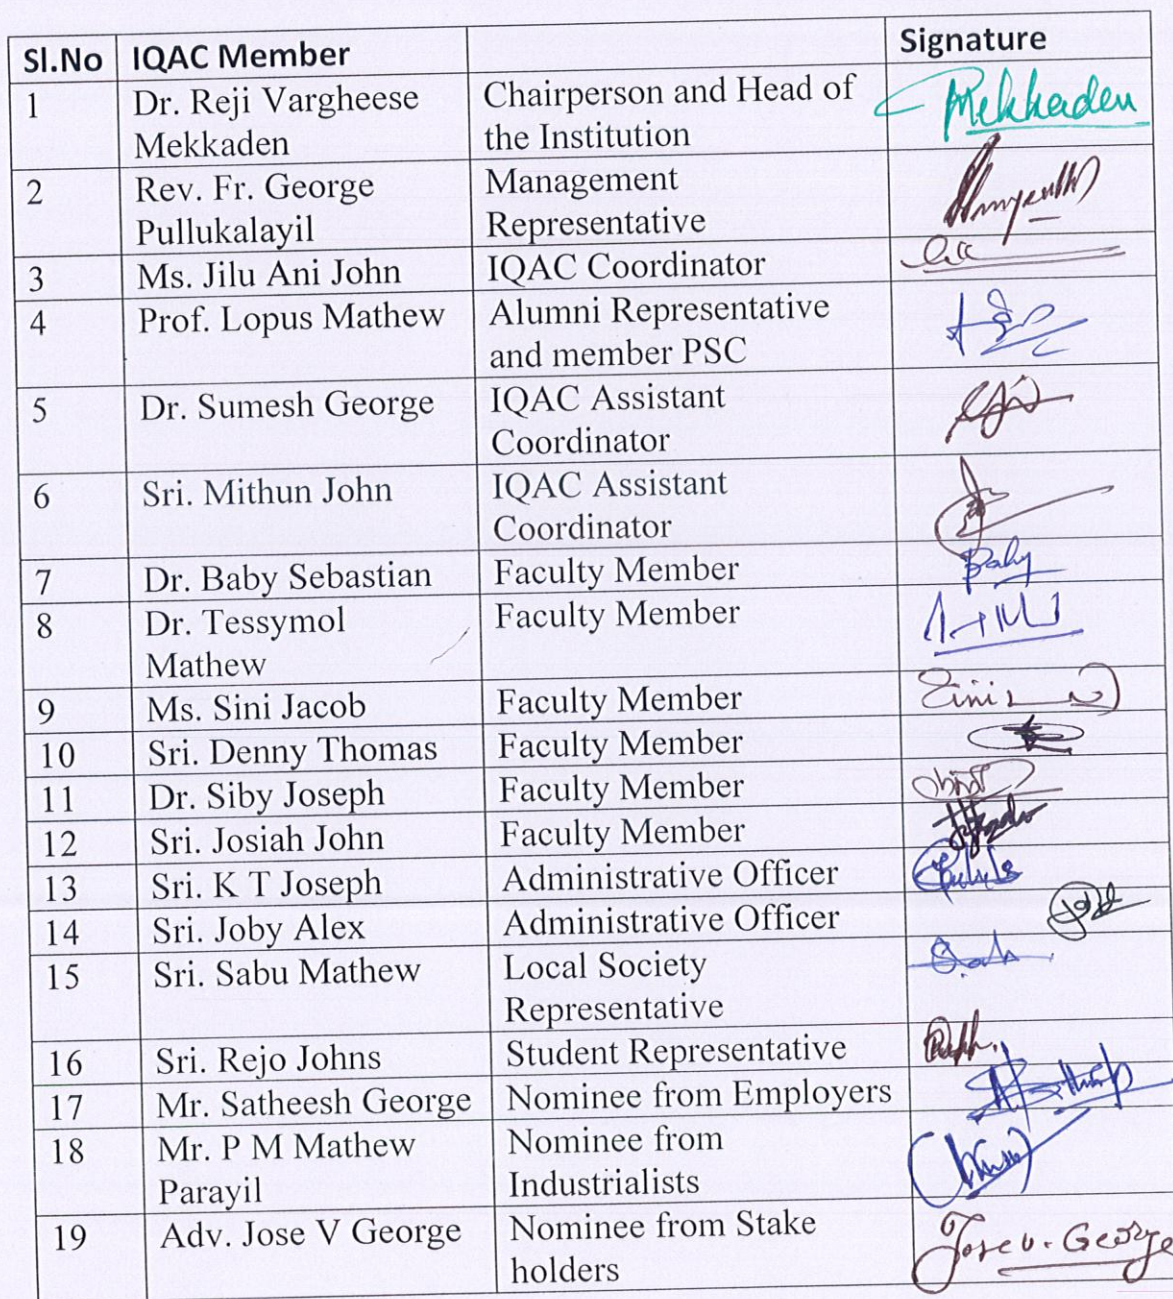 Sl.No IQAC Member Signature
1 Dr. Reji Vargheese Chairperson and Head of Mekkaden
Mekkaden the Institution
2 Rev. Fr. George Management
Pullukalayil Representative
3 Ms. Jilu Ani John IQAC Coordinator
4 Prof. Lopus Mathew Alumni Representative
and member PSC
5 Dr. Sumesh George IQAC Assistant
Coordinator
6 Sri. Mithun John IQAC Assistant
Coordinator
7 Dr. Baby Sebastian Faculty Member Baby
8 Dr. Tessymol Faculty Member
Mathew
9 Ms. Sini Jacob Faculty Member Sini
10 Sri. Denny Thomas Faculty Member
11 Dr. Siby Joseph Faculty Member
12 Sri. Josiah John Faculty Member
13 Sri. K T Joseph Administrative Officer
14 Sri. Joby Alex Administrative Officer
15 Sri. Sabu Mathew Local Society
Representative
16 Sri. Rejo Johns Student Representative
17 Mr. Satheesh George Nominee from Employers
18 Mr. P M Mathew Nominee from
Parayil Industrialists
19 Adv. Jose V George Nominee from Stake Jose V. George
holders